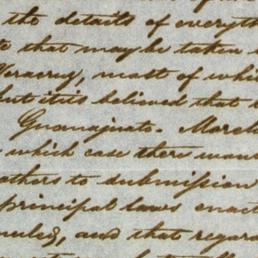 the details of everyth
that may be taken
Veracruz, most of whi
but it is believed that
Guanajuato. Morel
which case there wan
others to submission
principal laws enact
and that regar